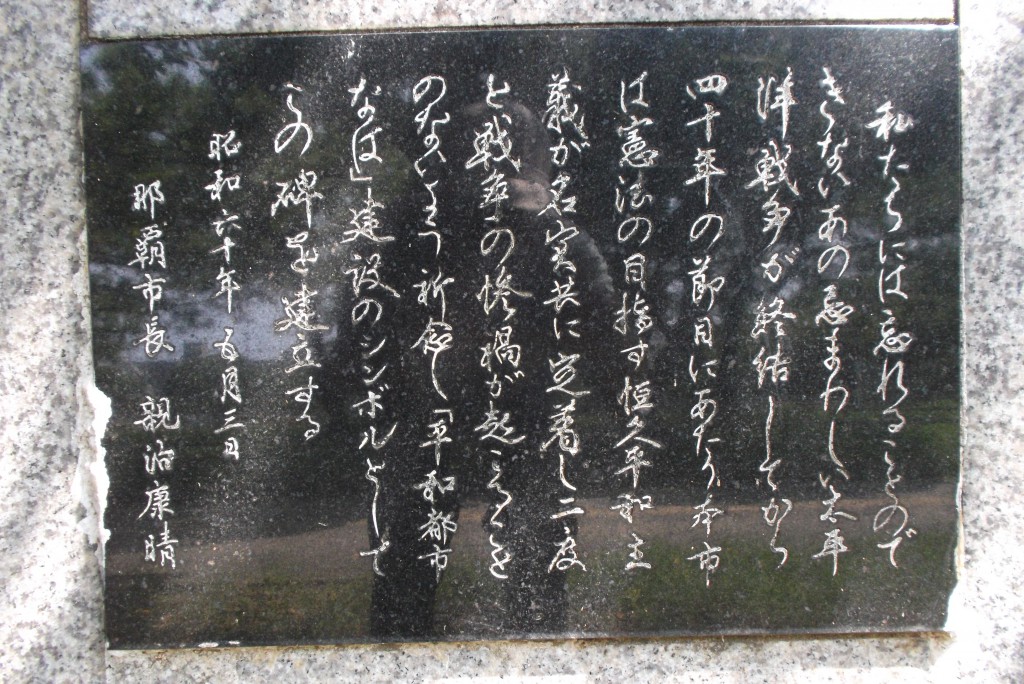 私たちには忘れることので
きないあの忌まわしい太平
洋戦争が終結してから
四十年の節目にあたり本市
は憲法の目指す恒久平和主
義が名実共に定着し二度
と戦争の惨禍が起ることを
のないよう祈念し「平和都市
なは」建設のシンボルとして
この碑を建立する
昭和六十年五月三日
那覇市長 親泊康晴